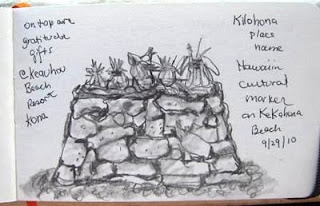 on top are
gratitude
gifts
@ Keauhou
Beach
Resort
Kona
Kilohona
place
name
Hawaiin
cultural
marker
on KeKahona
Beach
9/29/10